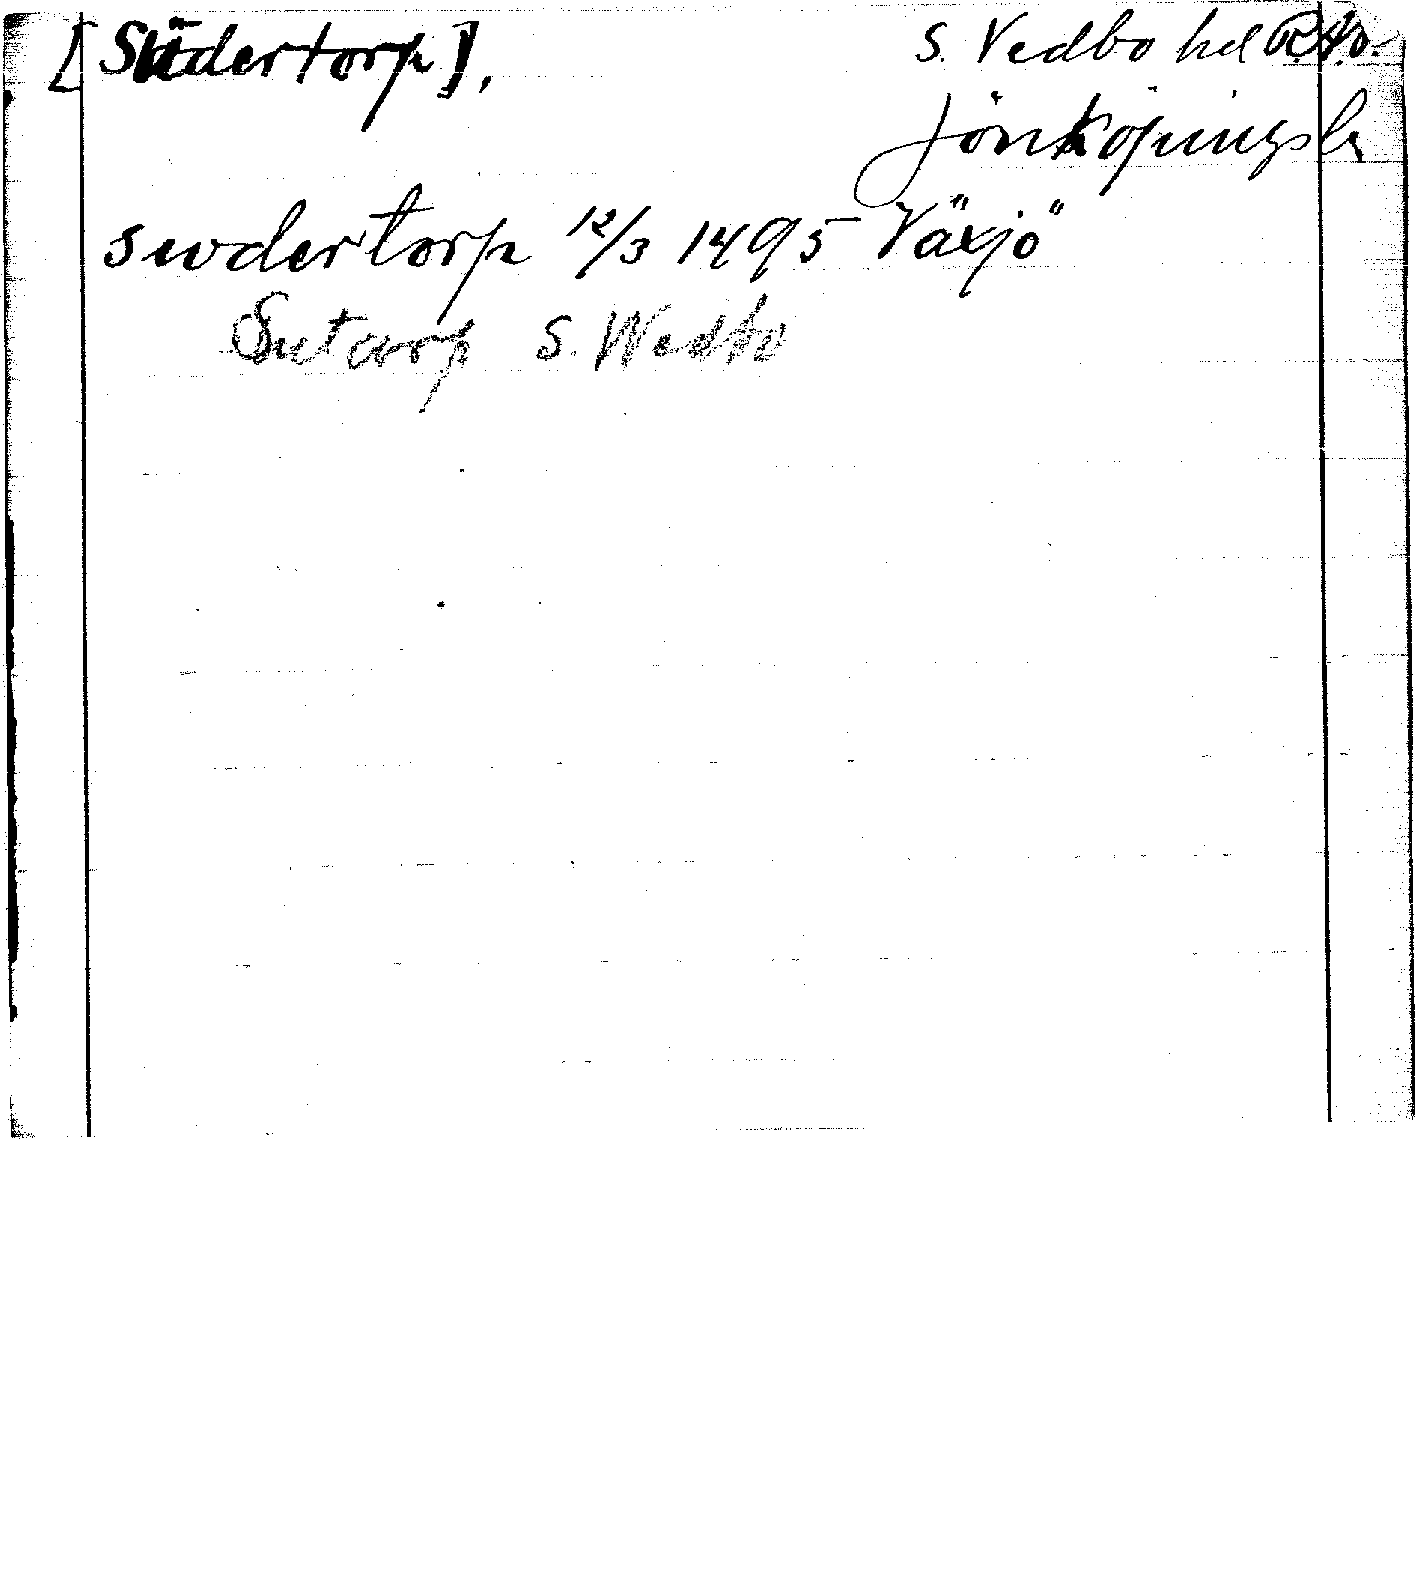 [Södertorp], S. Vedbo hd R.A.P.
Jönköpings ln
swdertorp 12/3 1495 Växjö
Sutarp S. Wedbo